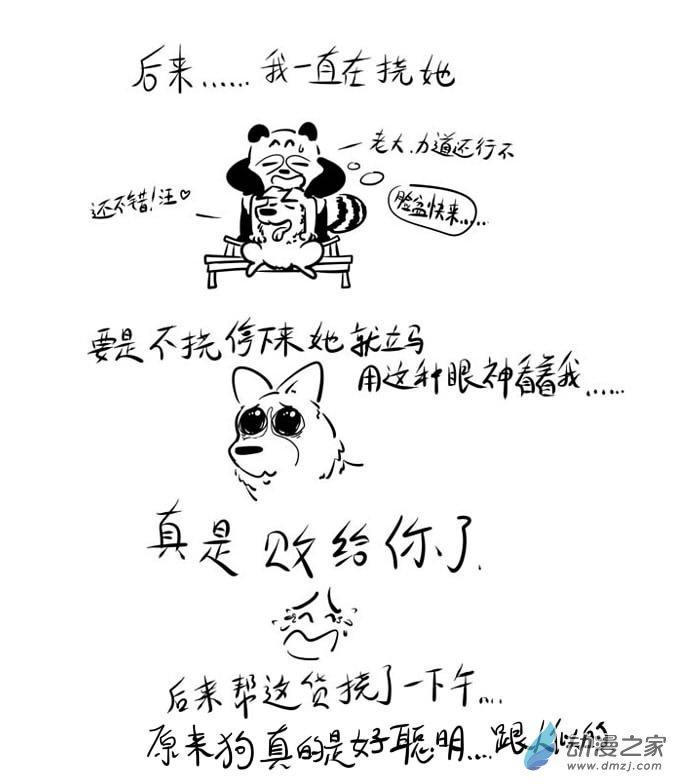 后来......我一直在挠她
老大.力道还行不
还不错!汪♡
脸盆快来.....
要是不挠停下来她就立马
用这种眼神看着我......
真是败给你了.
后来帮这货挠了一下午....
原来狗真的是好聪明....跟人似的
动漫之家
www.dmzj.com